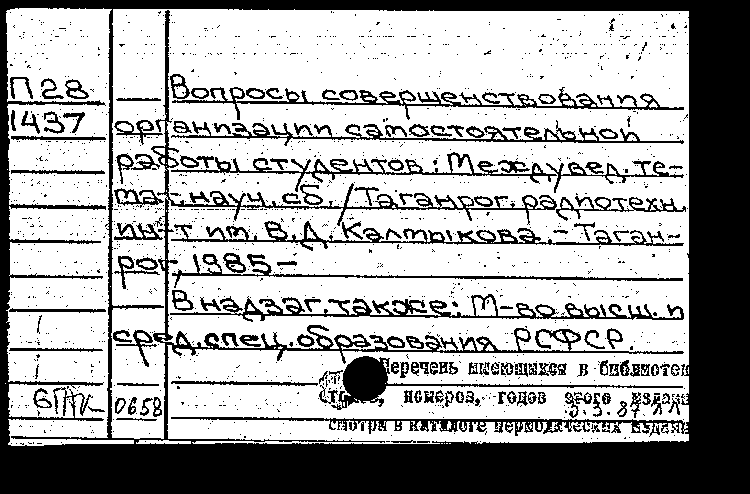 П28 Вопросы совершенствования
1437 организации самостоятельной
работы студентов: Междувед. те-
мат. науч. сб. / Таганрог. радиотехн.
ин-т им. В.Д. Калмыкова. - Таган-
рог, 1985-
В надзаг. также: М-во высш. и
сред. спец. образования РСФСР.
Перечень имеющихся в библиотек
номеров, годов этого издан
0658 3.3.87
смотри в каталоге периодических издани